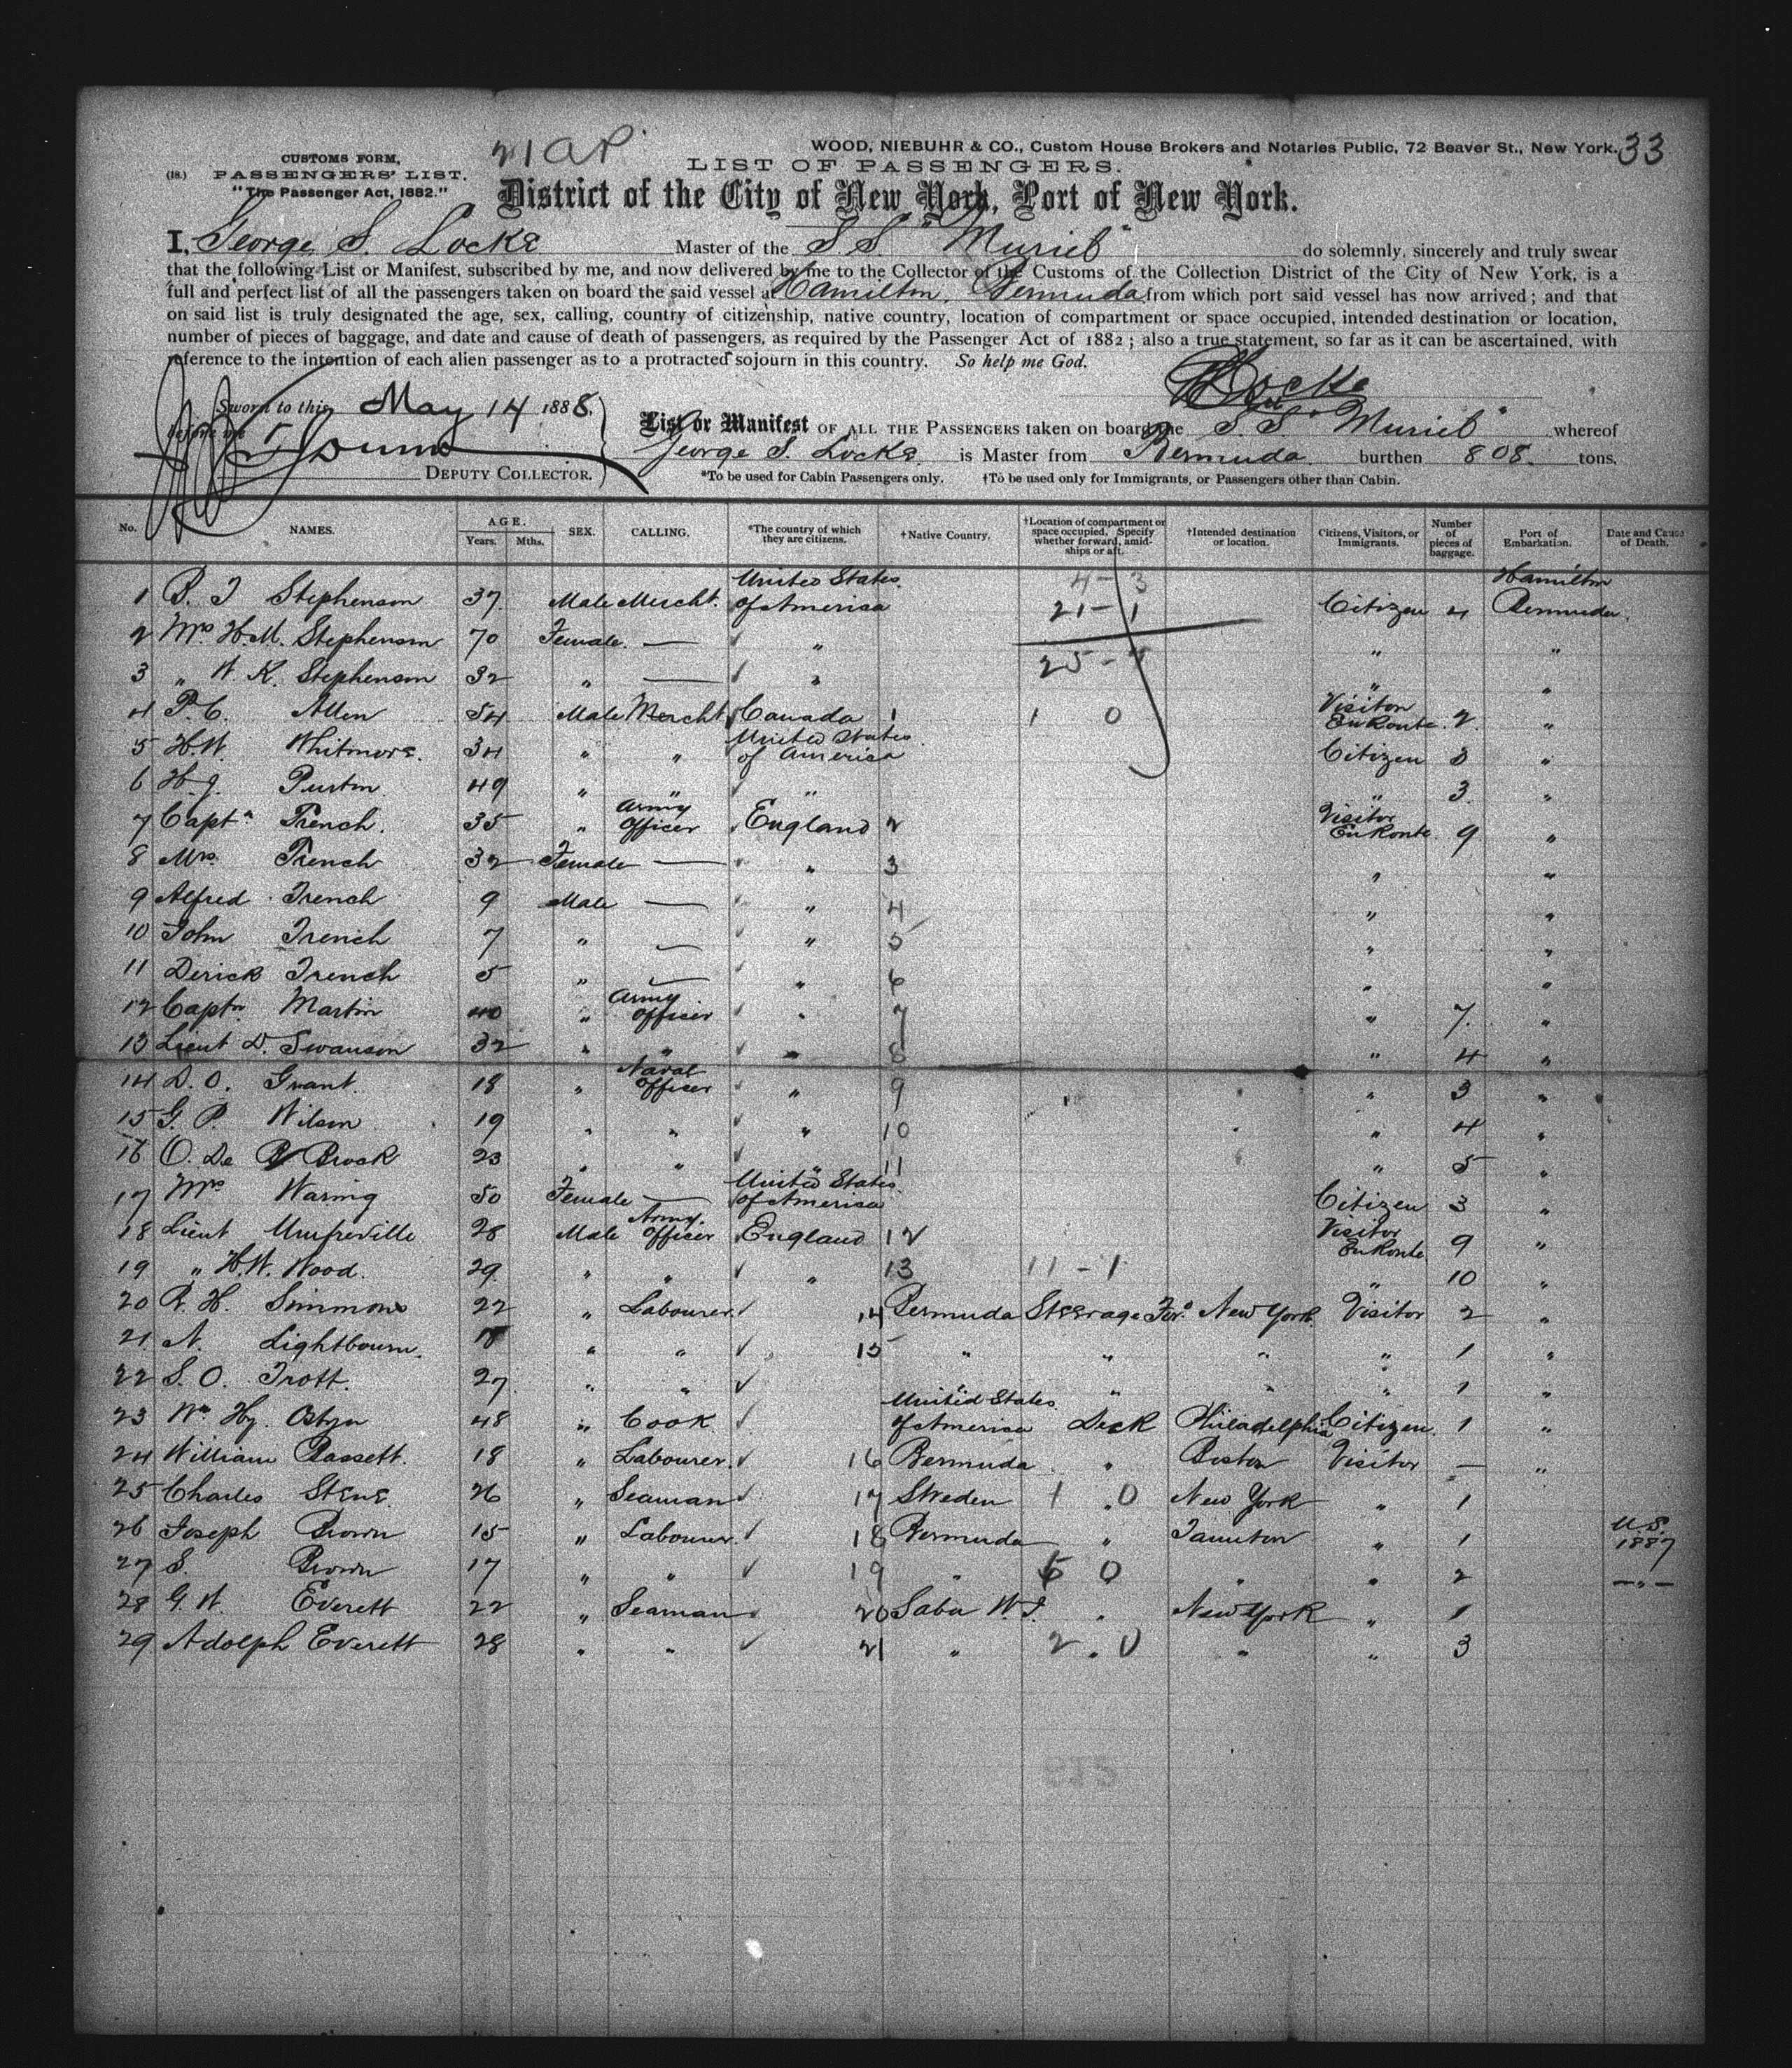 21 ap
WOOD, NIEBUHR & CO., Custom House Brokers and Notaries Public, 72 Beaver St., New York. 33
CUSTOMS FORM,
(18.) PASSENGERS' LIST.
"The Passenger Act, 1882."
LIST OF PASSENGERS.
District of the City of New York, Port of New York.
I, George S. Locke Master of the S.S. "Muriel" do solemnly, sincerely and truly swear
that the following List or Manifest, subscribed by me, and now delivered by me to the Collector of the Customs of the Collection District of the City of New York, is a
full and perfect list of all the passengers taken on board the said vessel at Hamilton, Bermuda from which port said vessel has now arrived; and that
on said list is truly designated the age, sex, calling, country of citizenship, native country, location of compartment or space occupied, intended destination or location,
number of pieces of baggage, and date and cause of death of passengers, as required by the Passenger Act of 1882; also a true statement, so far as it can be ascertained, with
reference to the intention of each alien passenger as to a protracted sojourn in this country. So help me God.
Locke
Sworn to this May 14 1888.
before me
DEPUTY COLLECTOR.
List or Manifest OF ALL THE PASSENGERS taken on board the S.S. "Muriel" whereof
George S. Locke is Master from Bermuda burthen 808. tons.
*To be used for Cabin Passengers only. †To be used only for Immigrants, or Passengers other than Cabin.
No. NAMES. AGE. Years. Mths. SEX. CALLING. *The country of which they are citizens. †Native Country. †Location of compartment or space occupied. Specify whether forward, amidships or aft. †Intended destination or location. Citizens, Visitors, or Immigrants. Number of pieces of baggage. Port of Embarkation. Date and Cause of Death.
4-3
21-1
25-4
1 B. J Stephenson 37 Male Mercht. United States of America Citizen 4 Hamilton Bermuda
2 Mrs H.M. Stephenson 70 Female — " " "
3 " W K. Stephenson 32 " — " " "
4 P.C. Allen 54 Male Mercht Canada 1 1 0 Visitor En Route 2 "
5 H.W. Whitmore. 34 " " United States of America Citizen 3 "
6 H.J. Purtin 49 " " " " 3 "
7 Captn Trench. 35 " Army Officer England 2 Visitor En Route 9 "
8 Mrs Trench 32 Female — " 3 " "
9 Alfred Trench 9 Male — " 4 " "
10 John Trench 7 " — " 5 " "
11 Derick Trench 5 " — " 6 " "
12 Captn Martin 40 " Army Officer " 7 " 7 "
13 Lieut D. Swanson 32 " " " 8 " 4 "
14 D.O. Grant. 18 " Naval Officer " 9 " 3 "
15 G. P. Wilson 19 " " " 10 " 4 "
16 O. De B Brock 23 " " " 11 " 5 "
17 Mrs Waring 50 Female — United States of America Citizen 3 "
18 Lieut Umfreville 28 Male Army Officer England 12 Visitor En Route 9 "
19 " H.W. Wood. 29 " " " 13 11-1 " 10 "
20 R. H. Simmons 22 " Labourer 14 Bermuda Steerage For. New York. Visitor 2 "
21 N. Lightbourn. " " 15 " " " " 1 "
22 S. O. Trott. 27 " " " " " " 1 "
23 Wm Hy. 48 " Cook United States of America Deck Philadelphia Citizen 1 "
24 William Bassett. 18 " Labourer. 16 Bermuda " Boston Visitor — "
25 Charles Stene. 26 " Seaman 17 Sweden 1 " 0 New York " 1
26 Joseph Brown 15 " Labourer. 18 Bermuda " Taunton " 1 U.S. 1887
27 S. Brown 17 " " 19 " 5 0 " " 2 —"—
28 G. W. Everett 22 " Seaman 20 Saba W.I. " New York " 1
29 Adolph Everett 28 " " 21 " 2 " 0 " " 3